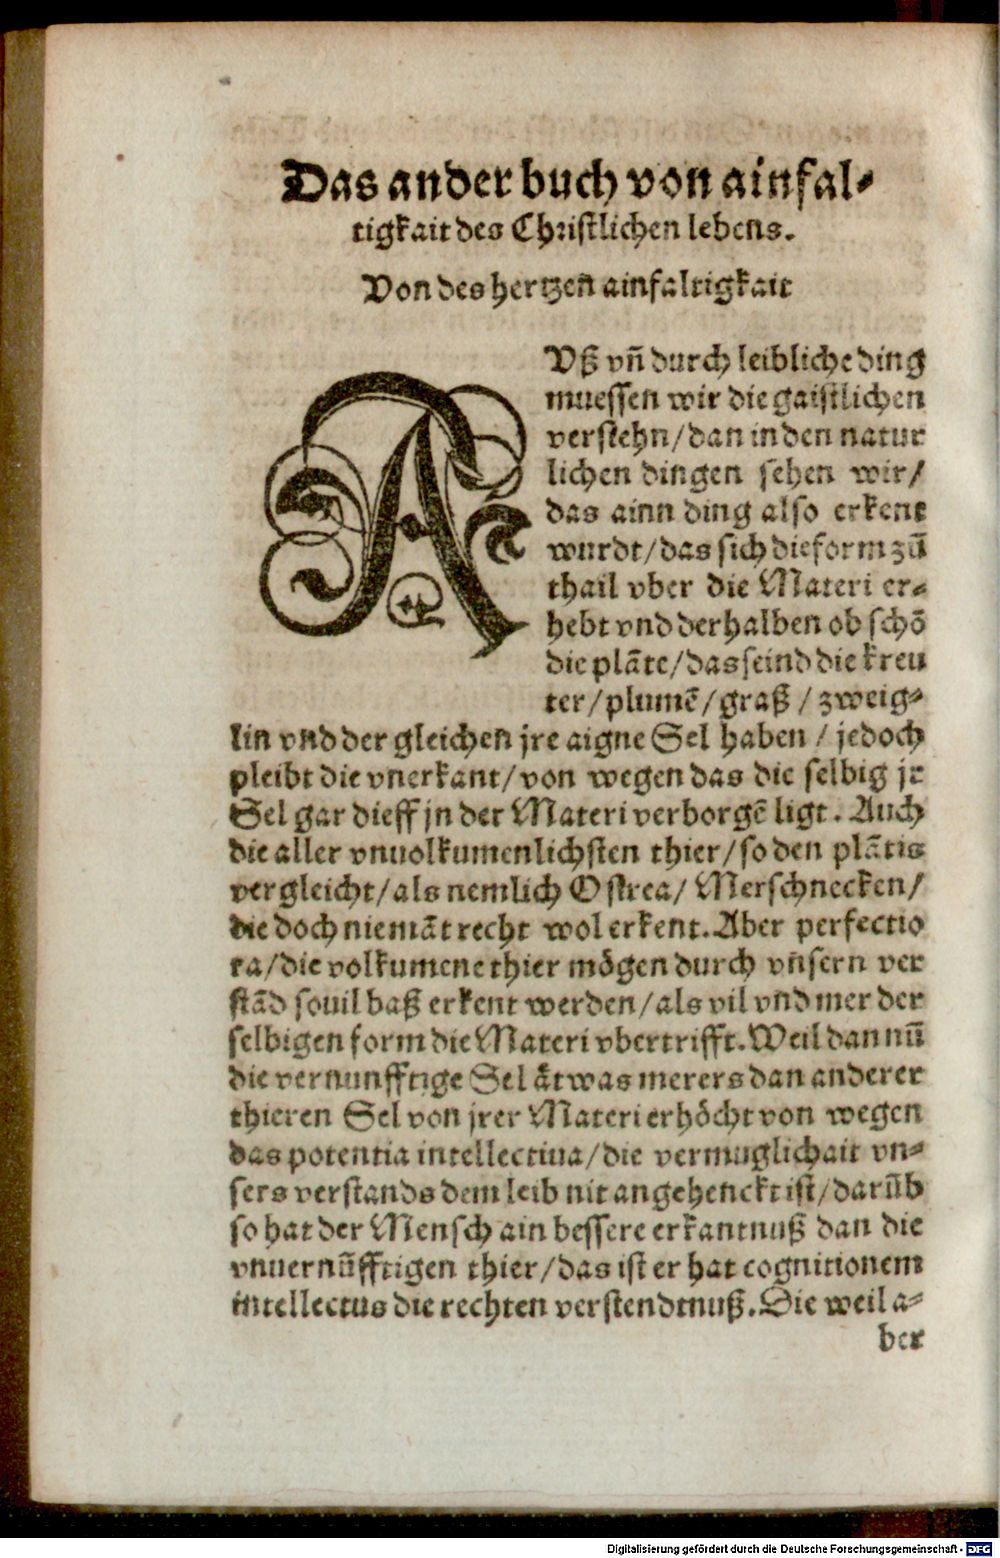 Das ander buch von ainfal⸗
tigkait des Christlichen lebens.
Von des hertzen ainfaltigkait
AVß vñ durch leibliche ding
muessen wir die gaistlichen
verstehn/dan in den natur
lichen dingen sehen wir/
das ainn ding also erkent
wurdt/das sich die form zū
thail vber die Materi er⸗
hebt vnd derhalben ob schō
die plāte/das seind die kreu
ter/plumē/graß/zweig⸗
lin vnd der gleichen jre aigne Sel haben/jedoch
pleibt die vnerkant/von wegen das die selbig jr
Sel gar dieff jn der Materi verborgē ligt. Auch
die aller vnuolkumenlichsten thier/so den plātis
vergleicht/als nemlich Ostrea/Merschnecken/
die doch niemāt recht wol erkent. Aber perfectio
ra/die volkumene thier mögen durch vnsern ver
stād souil baß erkent werden/als vil vnd mer der
selbigen form die Materi vbertrifft. Weil dan nū
die vernunfftige Sel ätwas merers dan anderer
thieren Sel von jrer Materi erhöcht von wegen
das potentia intellectiua/die vermuglichait vn⸗
sers verstands dem leib nit angehenckt ist/darūb
so hat der Mensch ain bessere erkantnuß dan die
vnuernūfftigen thier/das ist er hat cognitionem
intellectus die rechten verstendtnuß. Die weil a⸗
ber
Digitalisierung gefördert durch die Deutsche Forschungsgemeinschaft - DFG